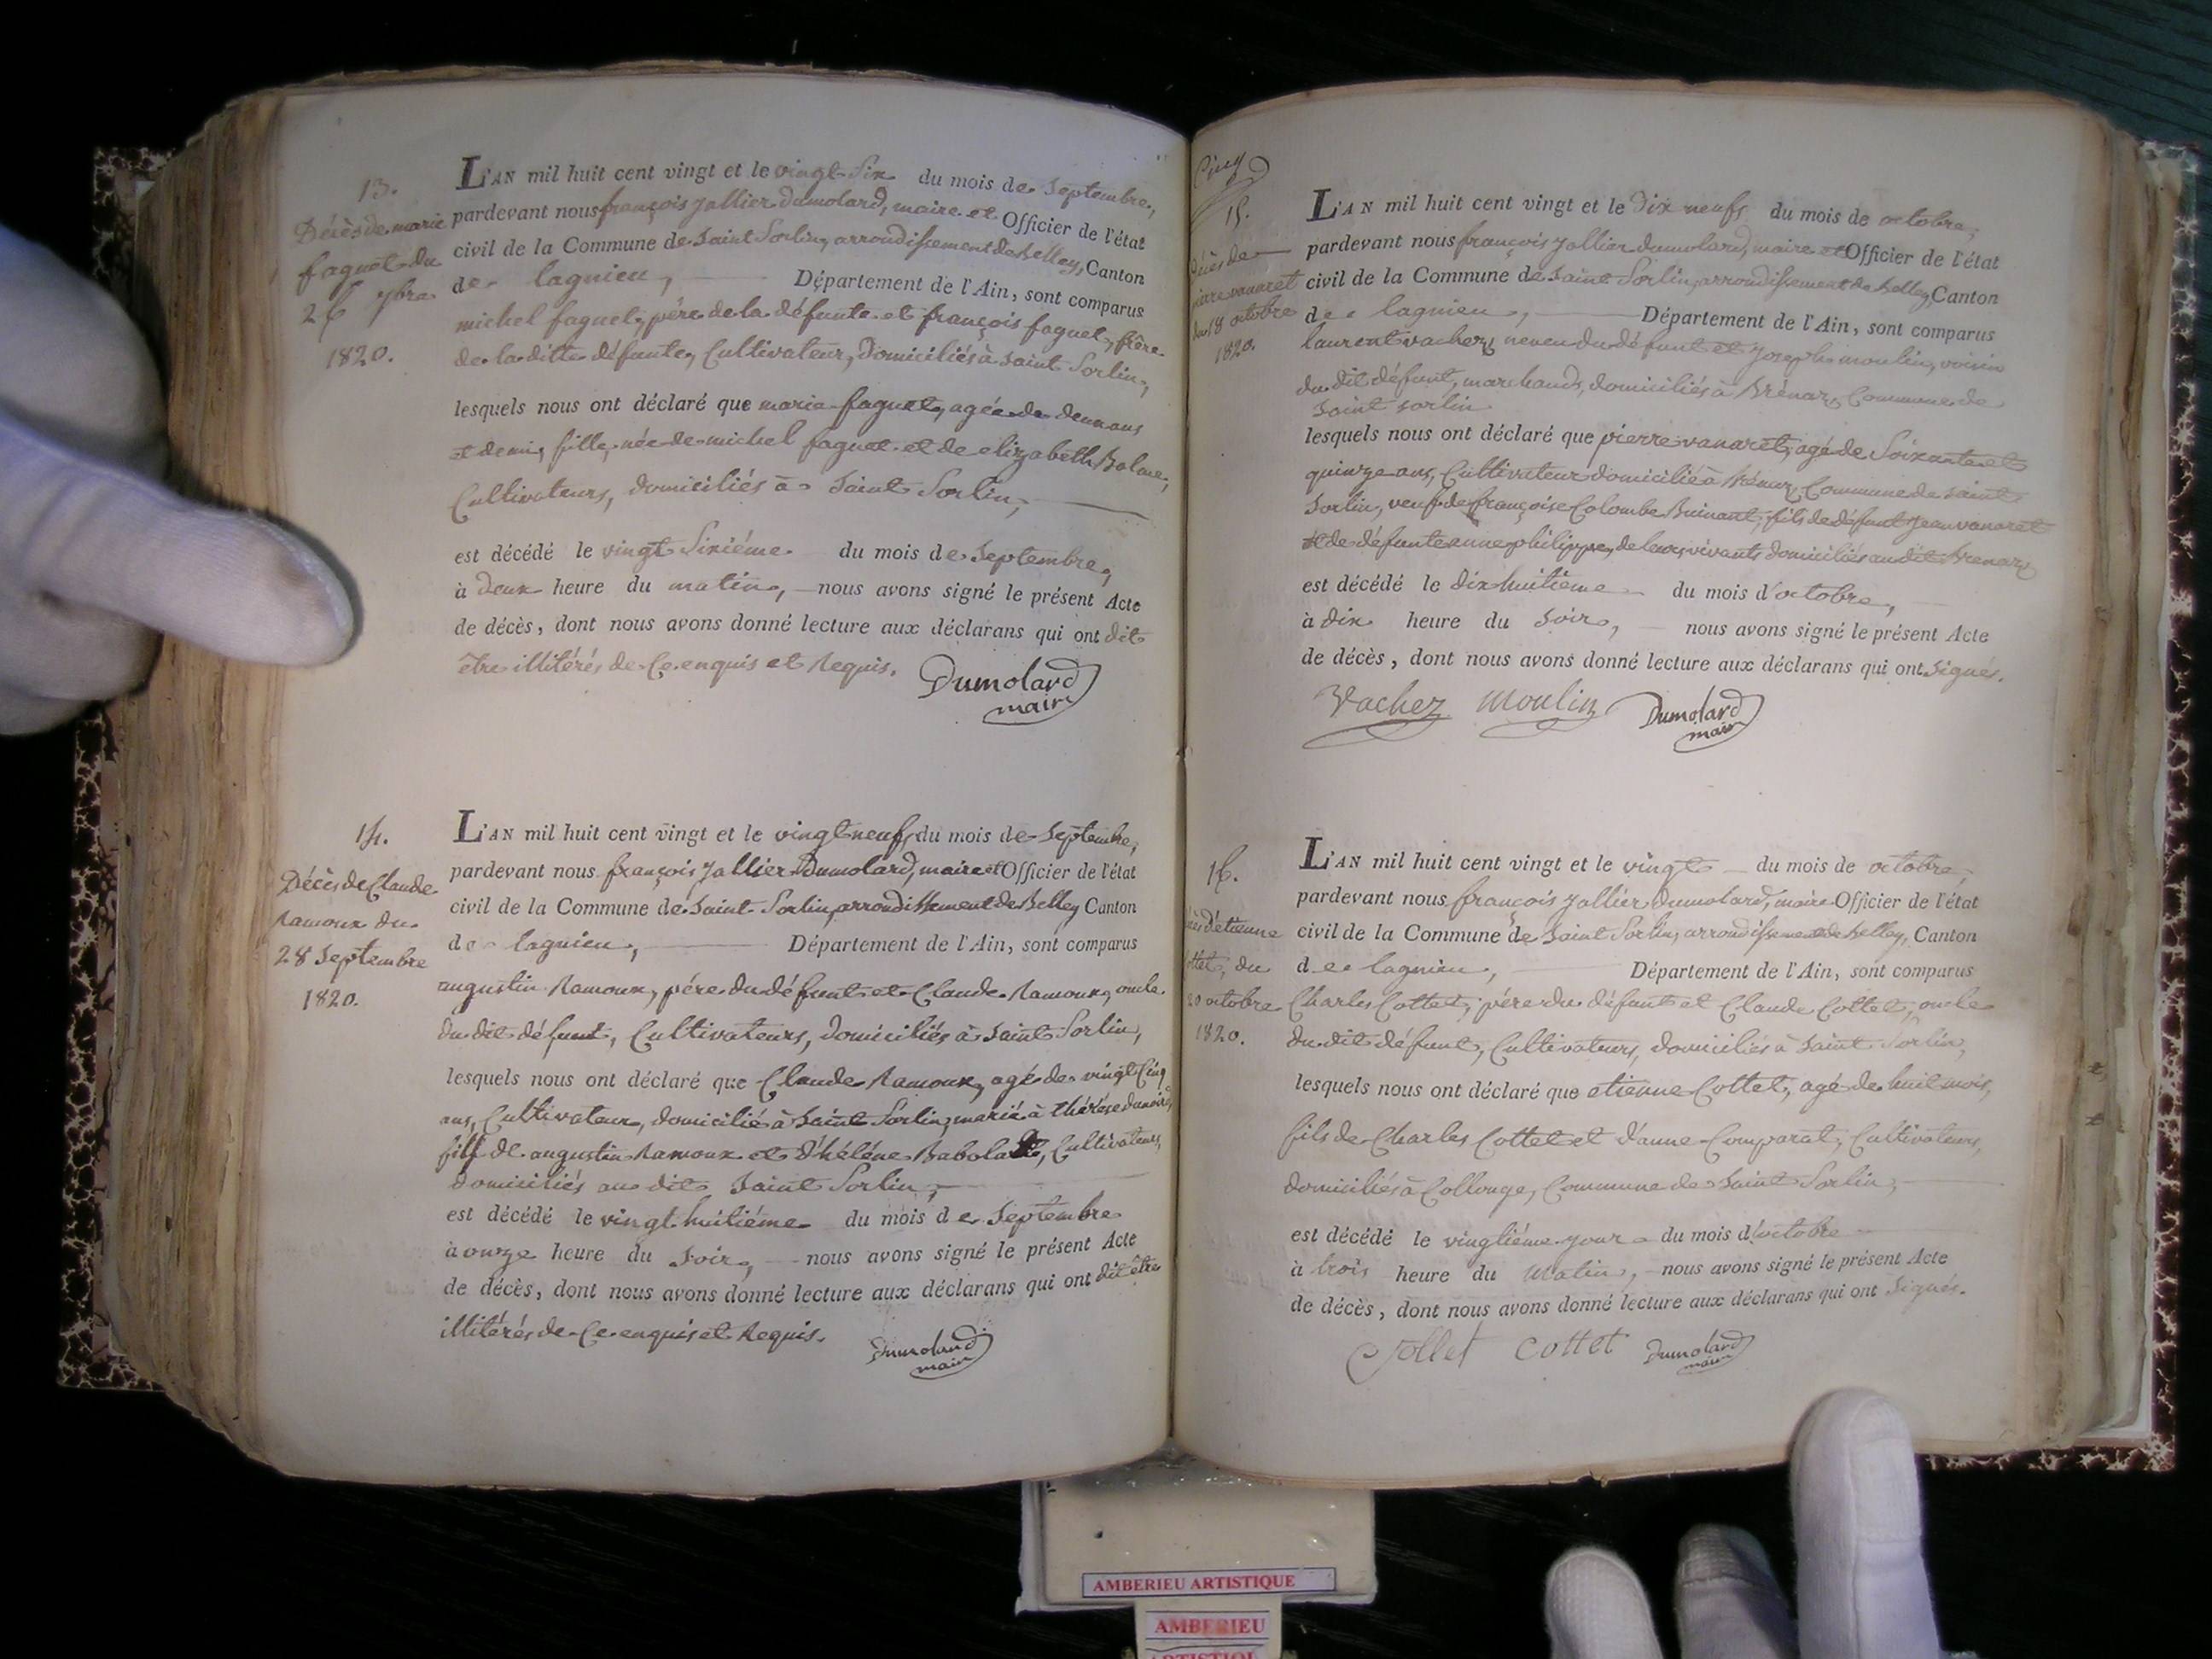 13.
Décès de marie
faguet du
26 7bre
1820.
L'AN mil huit cent vingt et le vingt Six du mois de Septembre,
pardevant nous françois Jallier Dumolard, maire et Officier de l'état
civil de la Commune de Saint Sorlin, arrondissement de Belley, Canton
de lagnieu, Département de l'Ain, sont comparus
michel faguet, père de la défunte et françois faguet, frère
de la ditte défunte, Cultivateur, Domiciliés à Saint Sorlin,
lesquels nous ont déclaré que marie faguet, agée de deux ans
et demi, fille, née de michel faguet et de elizabeth Balme,
Cultivateurs, domiciliés à Saint Sorlin,
est décédé le vingt Sixiéme du mois de Septembre,
à deux heure du matin, nous avons signé le présent Acte
de décès, dont nous avons donné lecture aux déclarans qui ont dit
être illitérés de Ce enquis et Requis.
Dumolard
maire
14.
Décès de Claude
Ramoux du
28 Septembre
1820.
L'AN mil huit cent vingt et le vingt neuf du mois de Septembre,
pardevant nous françois Jallier Dumolard, maire et Officier de l'état
civil de la Commune de Saint Sorlin, arrondissement de Belley Canton
de lagnieu, Département de l'Ain, sont comparus
augustin Ramoux, père du défunt et Claude Ramoux, oncle
du dit défunt, Cultivateurs, domiciliés à Saint Sorlin,
lesquels nous ont déclaré que Claude Ramoux, agé de vingt Cinq
ans, Cultivateur, domicilié à Saint Sorlin, marié à thérèse
fils de augustin Ramoux et d'héléne Cultivateurs,
domiciliés au dit Saint Sorlin,
est décédé le vingt huitiéme du mois de Septembre
à onze heure du Soir, nous avons signé le présent Acte
de décès, dont nous avons donné lecture aux déclarans qui ont dit être
illitérés de Ce enquis et Requis.
Dumolard
maire
Cinq
15.
Décès de
pierre vanaret
du 18 octobre
1820.
L'AN mil huit cent vingt et le Dix neuf du mois de octobre,
pardevant nous françois Jallier dumolard, maire et Officier de l'état
civil de la Commune de Saint Sorlin, arrondissement de Belley, Canton
de lagnieu, Département de l'Ain, sont comparus
laurent vachez, neveu du défunt et Joseph moulin, voisin
du dit défunt, marchands, domiciliés à Brénaz, Commune de
Saint Sorlin
lesquels nous ont déclaré que pierre vanaret, agé de Soixante et
quinze ans, Cultivateur domicilié à Brénaz, Commune de Saint
Sorlin, veuf de françoise Colombe Buinant, fils de défunt Jean vanaret
et de défunte anne philippe, de leurs vivants domiciliés au dit Brenaz
est décédé le dix huitiéme du mois d'octobre,
à dix heure du Soir, nous avons signé le présent Acte
de décès, dont nous avons donné lecture aux déclarans qui ont Signés.
Vachez Moulin Dumolard
maire
16.
Décès d'étienne
Cottet, du
20 octobre
1820.
L'AN mil huit cent vingt et le vingt du mois de octobre,
pardevant nous françois Jallier Dumolard, maire Officier de l'état
civil de la Commune de Saint Sorlin, arrondissement de Belley, Canton
de lagnieu, Département de l'Ain, sont comparus
Charles Cottet, père du défunt et Claude Cottet, oncle
du dit défunt, Cultivateurs, domiciliés à Saint Sorlin,
lesquels nous ont déclaré que etienne Cottet, agé de huit mois,
fils de Charles Cottet et d'anne Comparat, Cultivateurs,
domiciliés à Collonge, Commune de Saint Sorlin,
est décédé le vingtiéme jour du mois d'octobre
à trois heure du Matin, nous avons signé le présent Acte
de décès, dont nous avons donné lecture aux déclarans qui ont Signés.
Cottet Cottet Dumolard
maire
AMBERIEU ARTISTIQUE
AMBERIEU
ARTISTIQUE